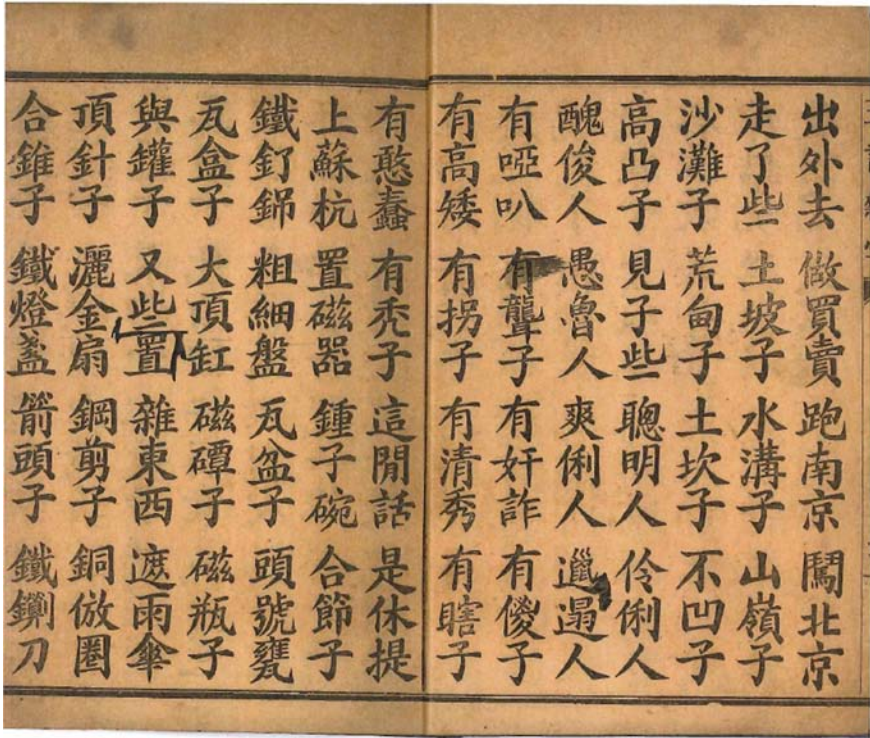 出外去 做買賣 跑南京 鬧北京
走了些 土坡子 水溝子 山嶺子
沙灘子 荒甸子 土坎子 不凹子
高凸子 見子些 聰明人 伶俐人
醜俊人 愚魯人 爽俐人 邋遢人
有啞叭 有聾子 有奸詐 有儍子
有高矮 有拐子 有清秀 有瞎子
有憨蠢 有禿子 這閒話 是休提
上蘇杭 置磁器 鍾子碗 合節子
鐵釕鉨 粗細盤 瓦盆子 頭號甕
瓦盒子 大頂缸 磁磹子 磁瓶子
與罐子 又些置 雜東西 遮雨傘
頂針子 灑金扇 鋼剪子 銅倣圈
合錐子 鐵燈盞 箭頭子 鐵鍘刀